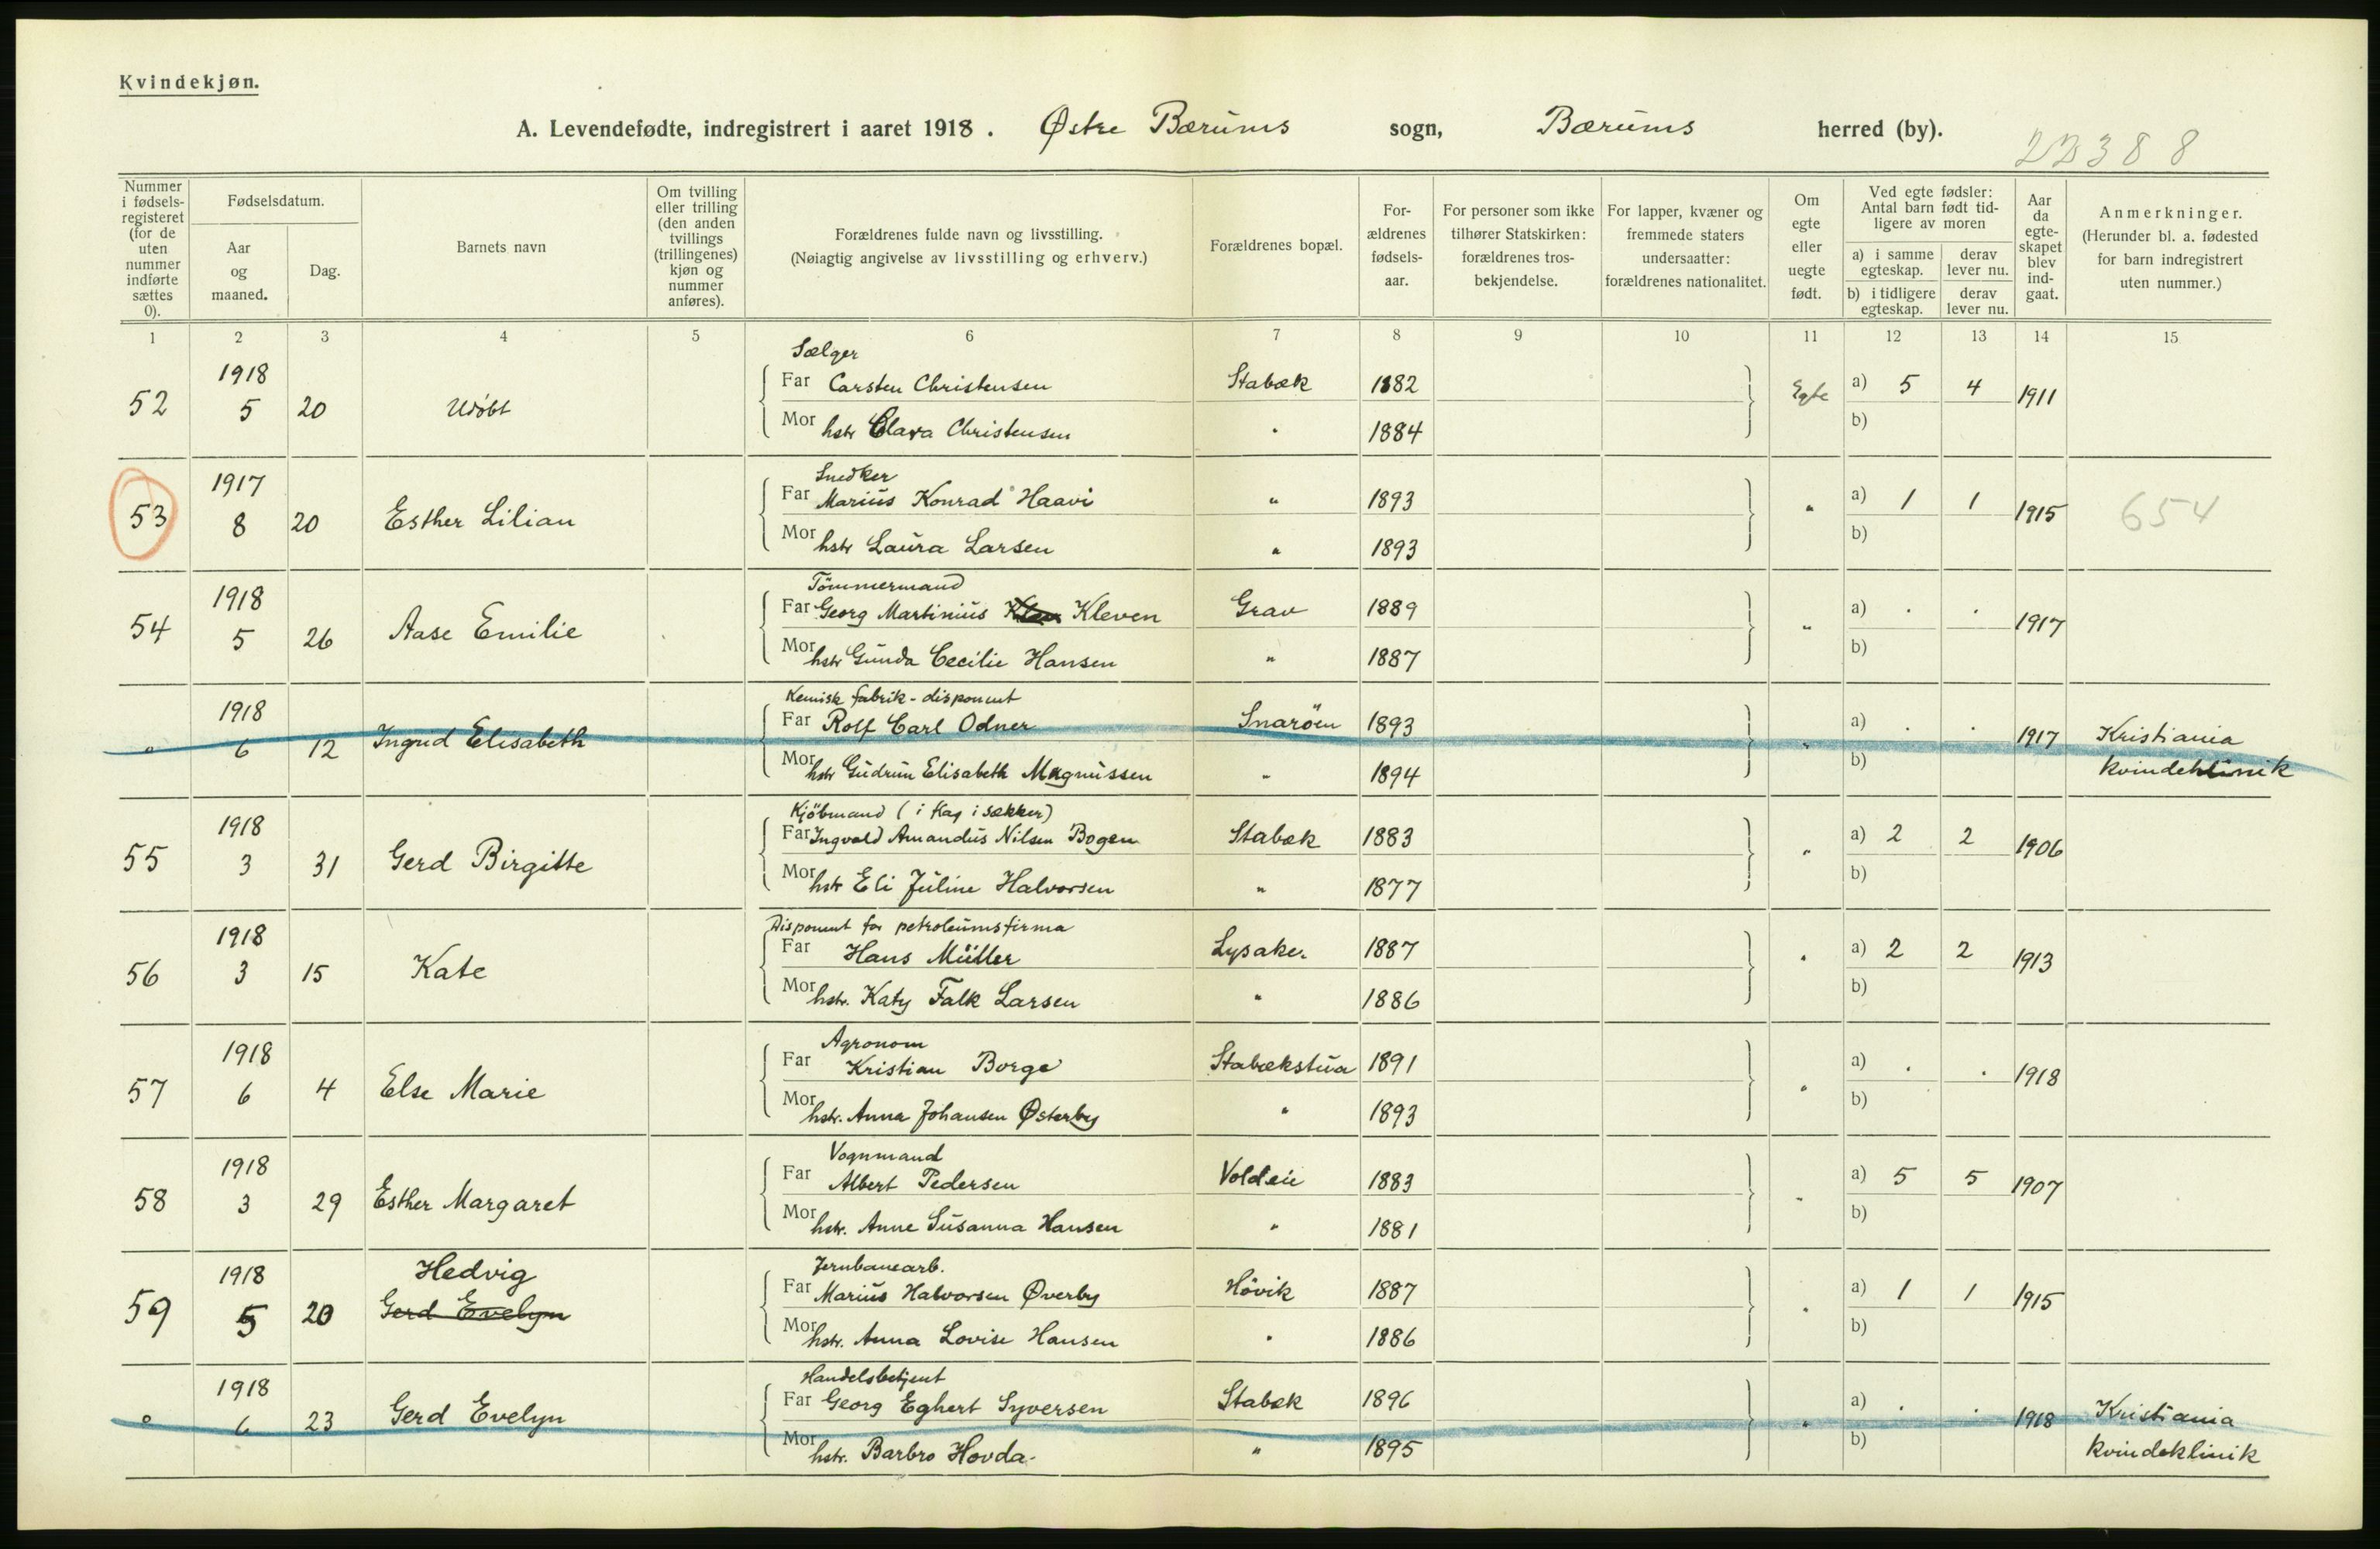 Kvindekjøn.
A. Levendefødte, indregistrert i aaret 1918. Østre Bærums sogn, Bærums herred (by).
22388
Nummer i fødsels-registeret (for de uten nummer indførte sættes 0).
Fødselsdatum.
Aar og maaned.
Dag.
Barnets navn
Om tvilling eller trilling (den anden tvillings (trillingenes) kjøn og nummer anføres).
Forældrenes fulde navn og livsstilling. (Nøiagtig angivelse av livsstilling og erhverv.)
Forældrenes bopæl.
For-ældrenes fødsels-aar.
For personer som ikke tilhører Statskirken: forældrenes tros-bekjendelse.
For lapper, kvæner og fremmede staters undersaatter: forældrenes nationalitet.
Om egte eller uegte født.
Ved egte fødsler: Antal barn født tid-ligere av moren
a) i samme egteskap. derav lever nu.
b) i tidligere egteskap. derav lever nu.
Aar da egte-skapet blev ind-gaat.
Anmerkninger. (Herunder bl. a. fødested for barn indregistrert uten nummer.)
1 2 3 4 5 6 7 8 9 10 11 12 13 14 15
Sælger
52 1918 5 20 Udøbt Far Carsten Christensen Stabæk 1882 Egte a) 5 4 1911
Mor hstr Clara Christensen " 1884 b)
Snedker
53 1917 8 20 Esther Lilian Far Marius Konrad Haavi " 1893 " a) 1 1 1915 654
Mor hstr Laura Larsen " 1893 b)
Tömmermand
54 1918 5 26 Aase Emilie Far Georg Martinius Kleven Grav 1889 " a) . . 1917
Mor hstr Gunda Cecilie Hansen " 1887 b)
Kemisk fabrik-disponent
0 1918 6 12 Ingrid Elisabeth Far Rolf Carl Odner Snaröen 1893 " a) . . 1917 Kristiania
Mor hstr Gudrun Elisabeth Magnussen " 1894 b) kvindeklinik
Kjöbmand (i Kap i sækker)
55 1918 3 31 Gerd Birgitte Far Ingvald Amandus Nilsen Bogen Stabæk 1883 " a) 2 2 1906
Mor hstr Eli Juline Halvorsen " 1877 b)
Disponent for petroleumsfirma
56 1918 3 15 Kate Far Hans Müller Lysaker 1887 " a) 2 2 1913
Mor hstr. Katy Falk Larsen " 1886 b)
Agronom
57 1918 6 4 Else Marie Far Kristian Borge Stabækstua 1891 " a) . . 1918
Mor hstr. Anna Johansen Østerby " 1893 b)
Vognmand
58 1918 3 29 Esther Margaret Far Albert Pedersen Voldeie 1883 " a) 5 5 1907
Mor hstr. Anne Susanna Hansen " 1881 b)
Jernbanearb.
59 1918 5 20 Hedvig Gerd Evelyn Far Marius Halvorsen Øverby Hövik 1887 " a) 1 1 1915
Mor hstr. Anna Lovise Hansen " 1886 b)
Handelsbetjent
0 1918 6 23 Gerd Evelyn Far Georg Eghert Syversen Stabæk 1896 " a) . . 1918 Kristiania
Mor hstr. Barbro Hovda " 1895 b) kvindeklinik